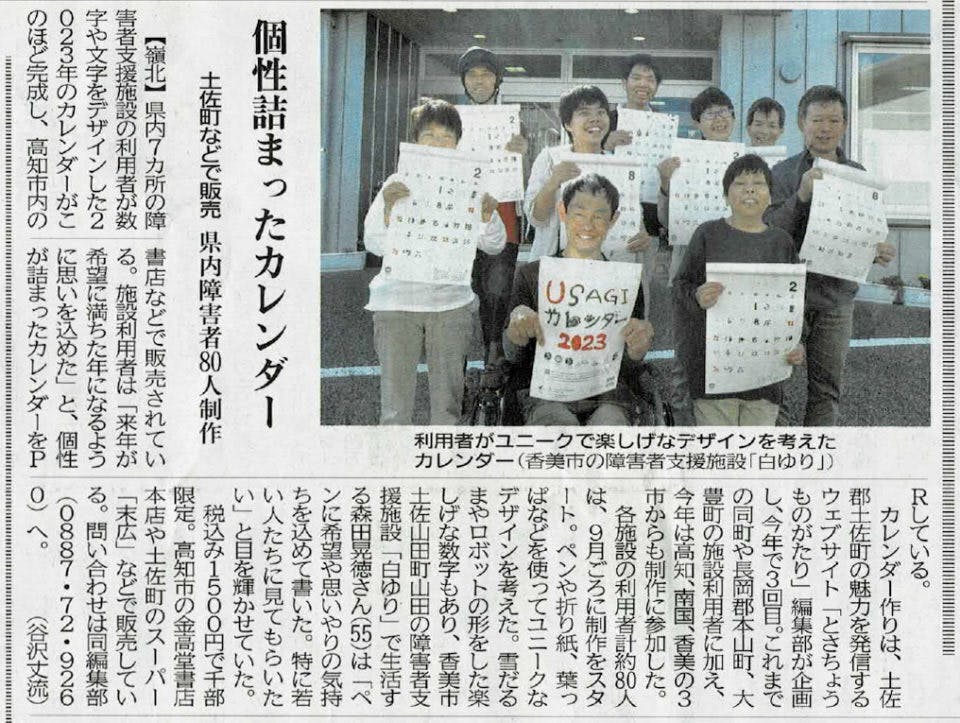 個性詰まったカレンダー
土佐町などで販売 県内障害者80人制作
【嶺北】県内７カ所の障
害者支援施設の利用者が数
字や文字をデザインした２
０２３年のカレンダーがこ
のほど完成し、高知市内の
書店などで販売されてい
る。施設利用者は「来年が
希望に満ちた年になるよう
に思いを込めた」と、個性
が詰まったカレンダーをＰ
Ｒしている。
カレンダー作りは、土佐
郡土佐町の魅力を発信する
ウェブサイト「とさちょう
ものがたり」編集部が企画
し、今年で３回目。これまで
の同町や長岡郡本山町、大
豊町の施設利用者に加え、
今年は高知、南国、香美の３
市からも制作に参加した。
各施設の利用者計約80人
は、９月ごろに制作をスタ
ート。ペンや折り紙、葉っ
ぱなどを使ってユニークな
デザインを考えた。雪だる
まやロボットの形をした楽
しげな数字もあり、香美市
土佐山田町山田の障害者支
援施設「白ゆり」で生活す
る森田晃徳さん(55)は「ペ
ンに希望や思いやりの気持
ちを込めて書いた。特に若
い人たちに見てもらいた
い」と目を輝かせていた。
税込み１５００円で千部
限定。高知市の金高堂書店
本店や土佐町のスーパー
「末広」などで販売してい
る。問い合わせは同編集部
（０８８７・７２・９２６
０）へ。　（谷沢丈流）
USAGI
カレンダー
2023
2
8
2
8
2
利用者がユニークで楽しげなデザインを考えた
カレンダー（香美市の障害者支援施設「白ゆり」）